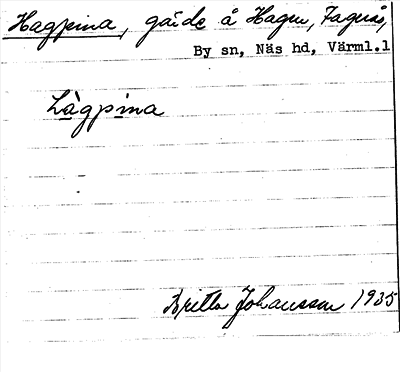 Hagpina, gärde å Hagen, Fagerås,
By sn, Näs hd, Värml.l
Làgpina
Britta Johansson 1935